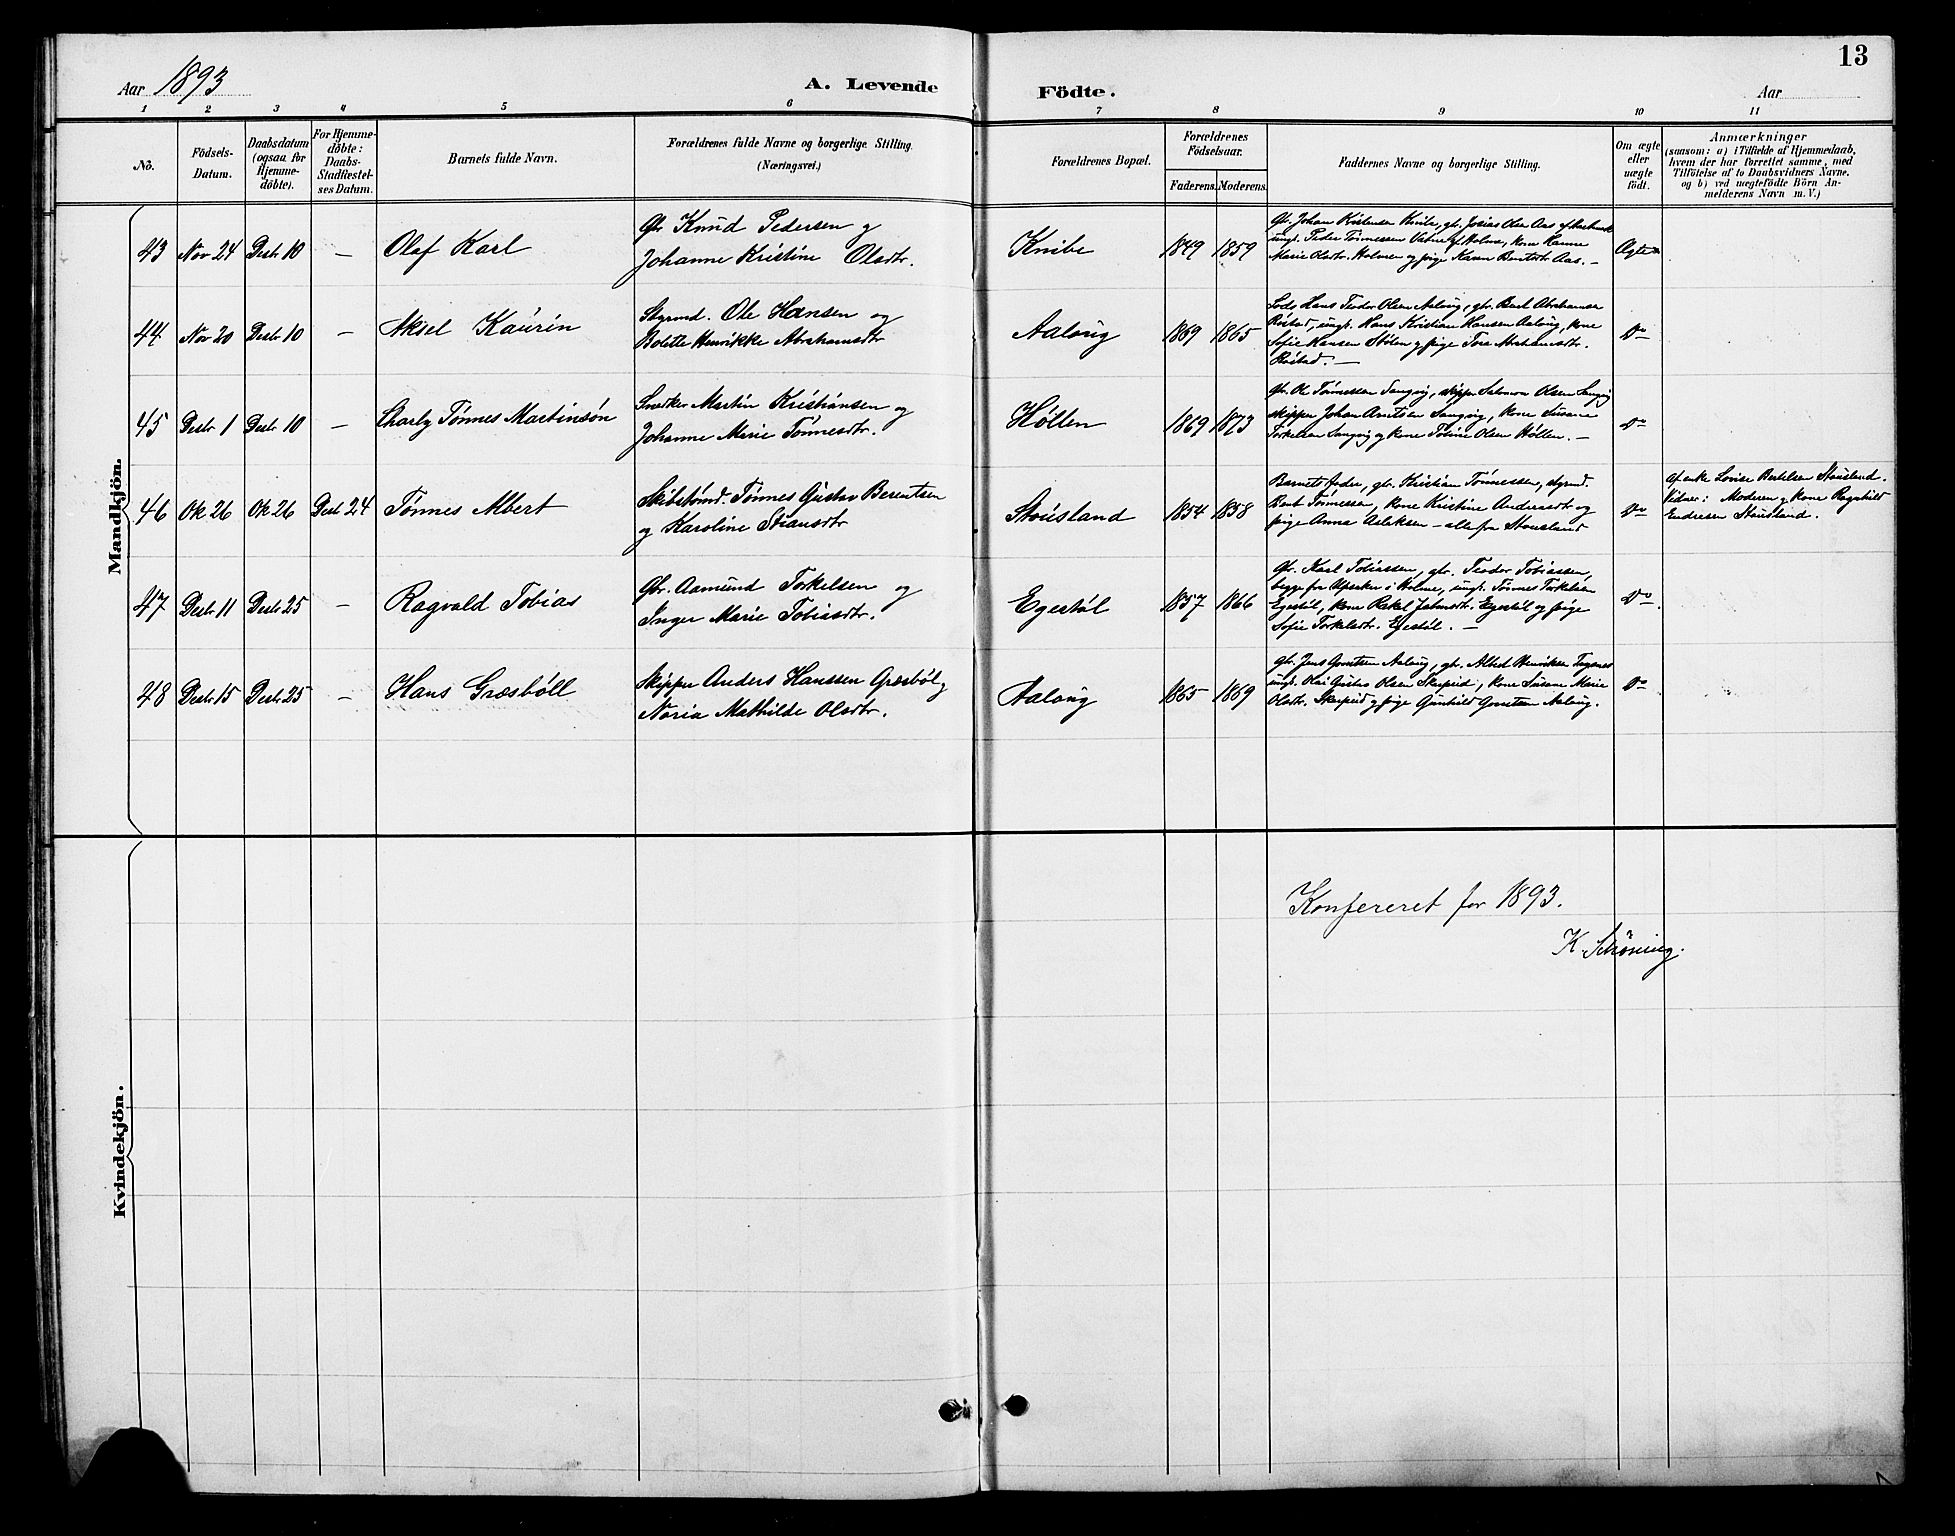 13
Aar 1893
A. Levende
Födte.
Aar
1 2 3 4 5 6 7 8 9 10 11
No.
Födsels-
Datum.
Daabsdatum
(ogsaa for
Hjemme-
döbte).
For Hjemme-
döbte:
Daabs-
Stadfæstel-
ses Datum.
Barnets fulde Navn.
Forældrenes fulde Navne og borgerlige Stilling.
(Næringsvei.)
Forældrenes Bopæl.
Forældrenes
Födselsaar.
Faderens. Moderens.
Faddernes Navne og borgerlige Stilling.
Om ægte
eller
uægte
födt.
Anmærkninger
(saasom: a) i Tilfælde af Hjemmedaab,
hvem der har forrettet samme, med
Tilföielse af to Daabsvidners Navne.
og b) ved uægtefödte Börn An-
melderens Navn m. V.)
Mandkjön.
43 Nov 24 Destr. 10 — Olaf Karl
Gbr. Knud Pedersen og
Johanne Kristine Olsdtr.
Knibe 1849 1859
Gbr. Johan Kristensen Knibe, gbr. Josias Olsen Aas af
ungk. Peder Tønnessen Vatne af Holme, kone Hanne
Marie Olsdtr. Holmen og pige Karen Berntsdtr. Aas. —
Ægte
44 Nov 20 Destr. 10 — Aksel Kaurin
Styrmd. Ole Hansen og
Bolette Henrikke Abrahamsdtr
Aaloug 1869 1865
Lods Hans Teodor Olsen Aaloug, gbr. Berl Abrahamsen
Røstad, ungk. Hans Kristian Hansen Aaloug, kone
Sofie Hansen Stølen og pige Tora Abrahamsdtr.
Røstad. —
Do
45 Destr. 1 Destr. 10 — Charly Tønnes Martinsøn
Snedker Martin Kristiansen og
Johanne Marie Tønnesdtr.
Høllen 1869 1873
Gbr. Ole Tønnessen Langvig, skipper Salomon Olsen Langvig
skipper Johan Arntsen Langvig, kone Susane
Torkelsen Langvig og kone Tobine Olsen Høllen. —
Do
46 Ok 26 Ok 26 Destr. 24 Tønnes Albert
Skibstømd. Tønnes Gustav Berentsen
og Karoline Stiansdtr
Stousland 1854 1858
Barnets fader, gbr. Kristian Tønnessen, styrmd.
Bent Tønnessen, kone Kristine Andersdtr og
pige Anna Aslaksen — alle fra Stousland
Do
af enke Lovise Bertelsen Stousland.
Vidner: Moderen og kone Ragnhild
Endresen Stousland.
47 Destr. 11 Destr. 25 — Ragvald Tobias
Gbr. Aamund Torkelsen og
Inger Marie Tobiasdtr.
Egestøl 1857 1866
Gbr. Karl Tobiassen, gbr. Teodor Tobiassen,
begge fra Upsaker i Holme, ungk. Tønnes Torkelsen
Egestøl, kone Rakel Jakobsdtr. Egestøl og pige
Sofie Torkelsdtr. Egestøl. —
Do.
48 Destr. 15 Destr. 25 — Hans Græsbøll
Skipper Anders Hanssen Græsbøl og
Noria Mathilde Olsdtr.
Aaloug 1865 1869
Gbr. Jens Govertsen Aaloug, gbr. Alfred Henriksen
ungk. Olai Gustav Olsen Skarpeid, kone Susane Marie
Olsdtr. Skarpeid og pige Gunhild Govertsen Aaloug.
Do
Kvindekjön.
Konfereret for 1893.
K. Schøning.